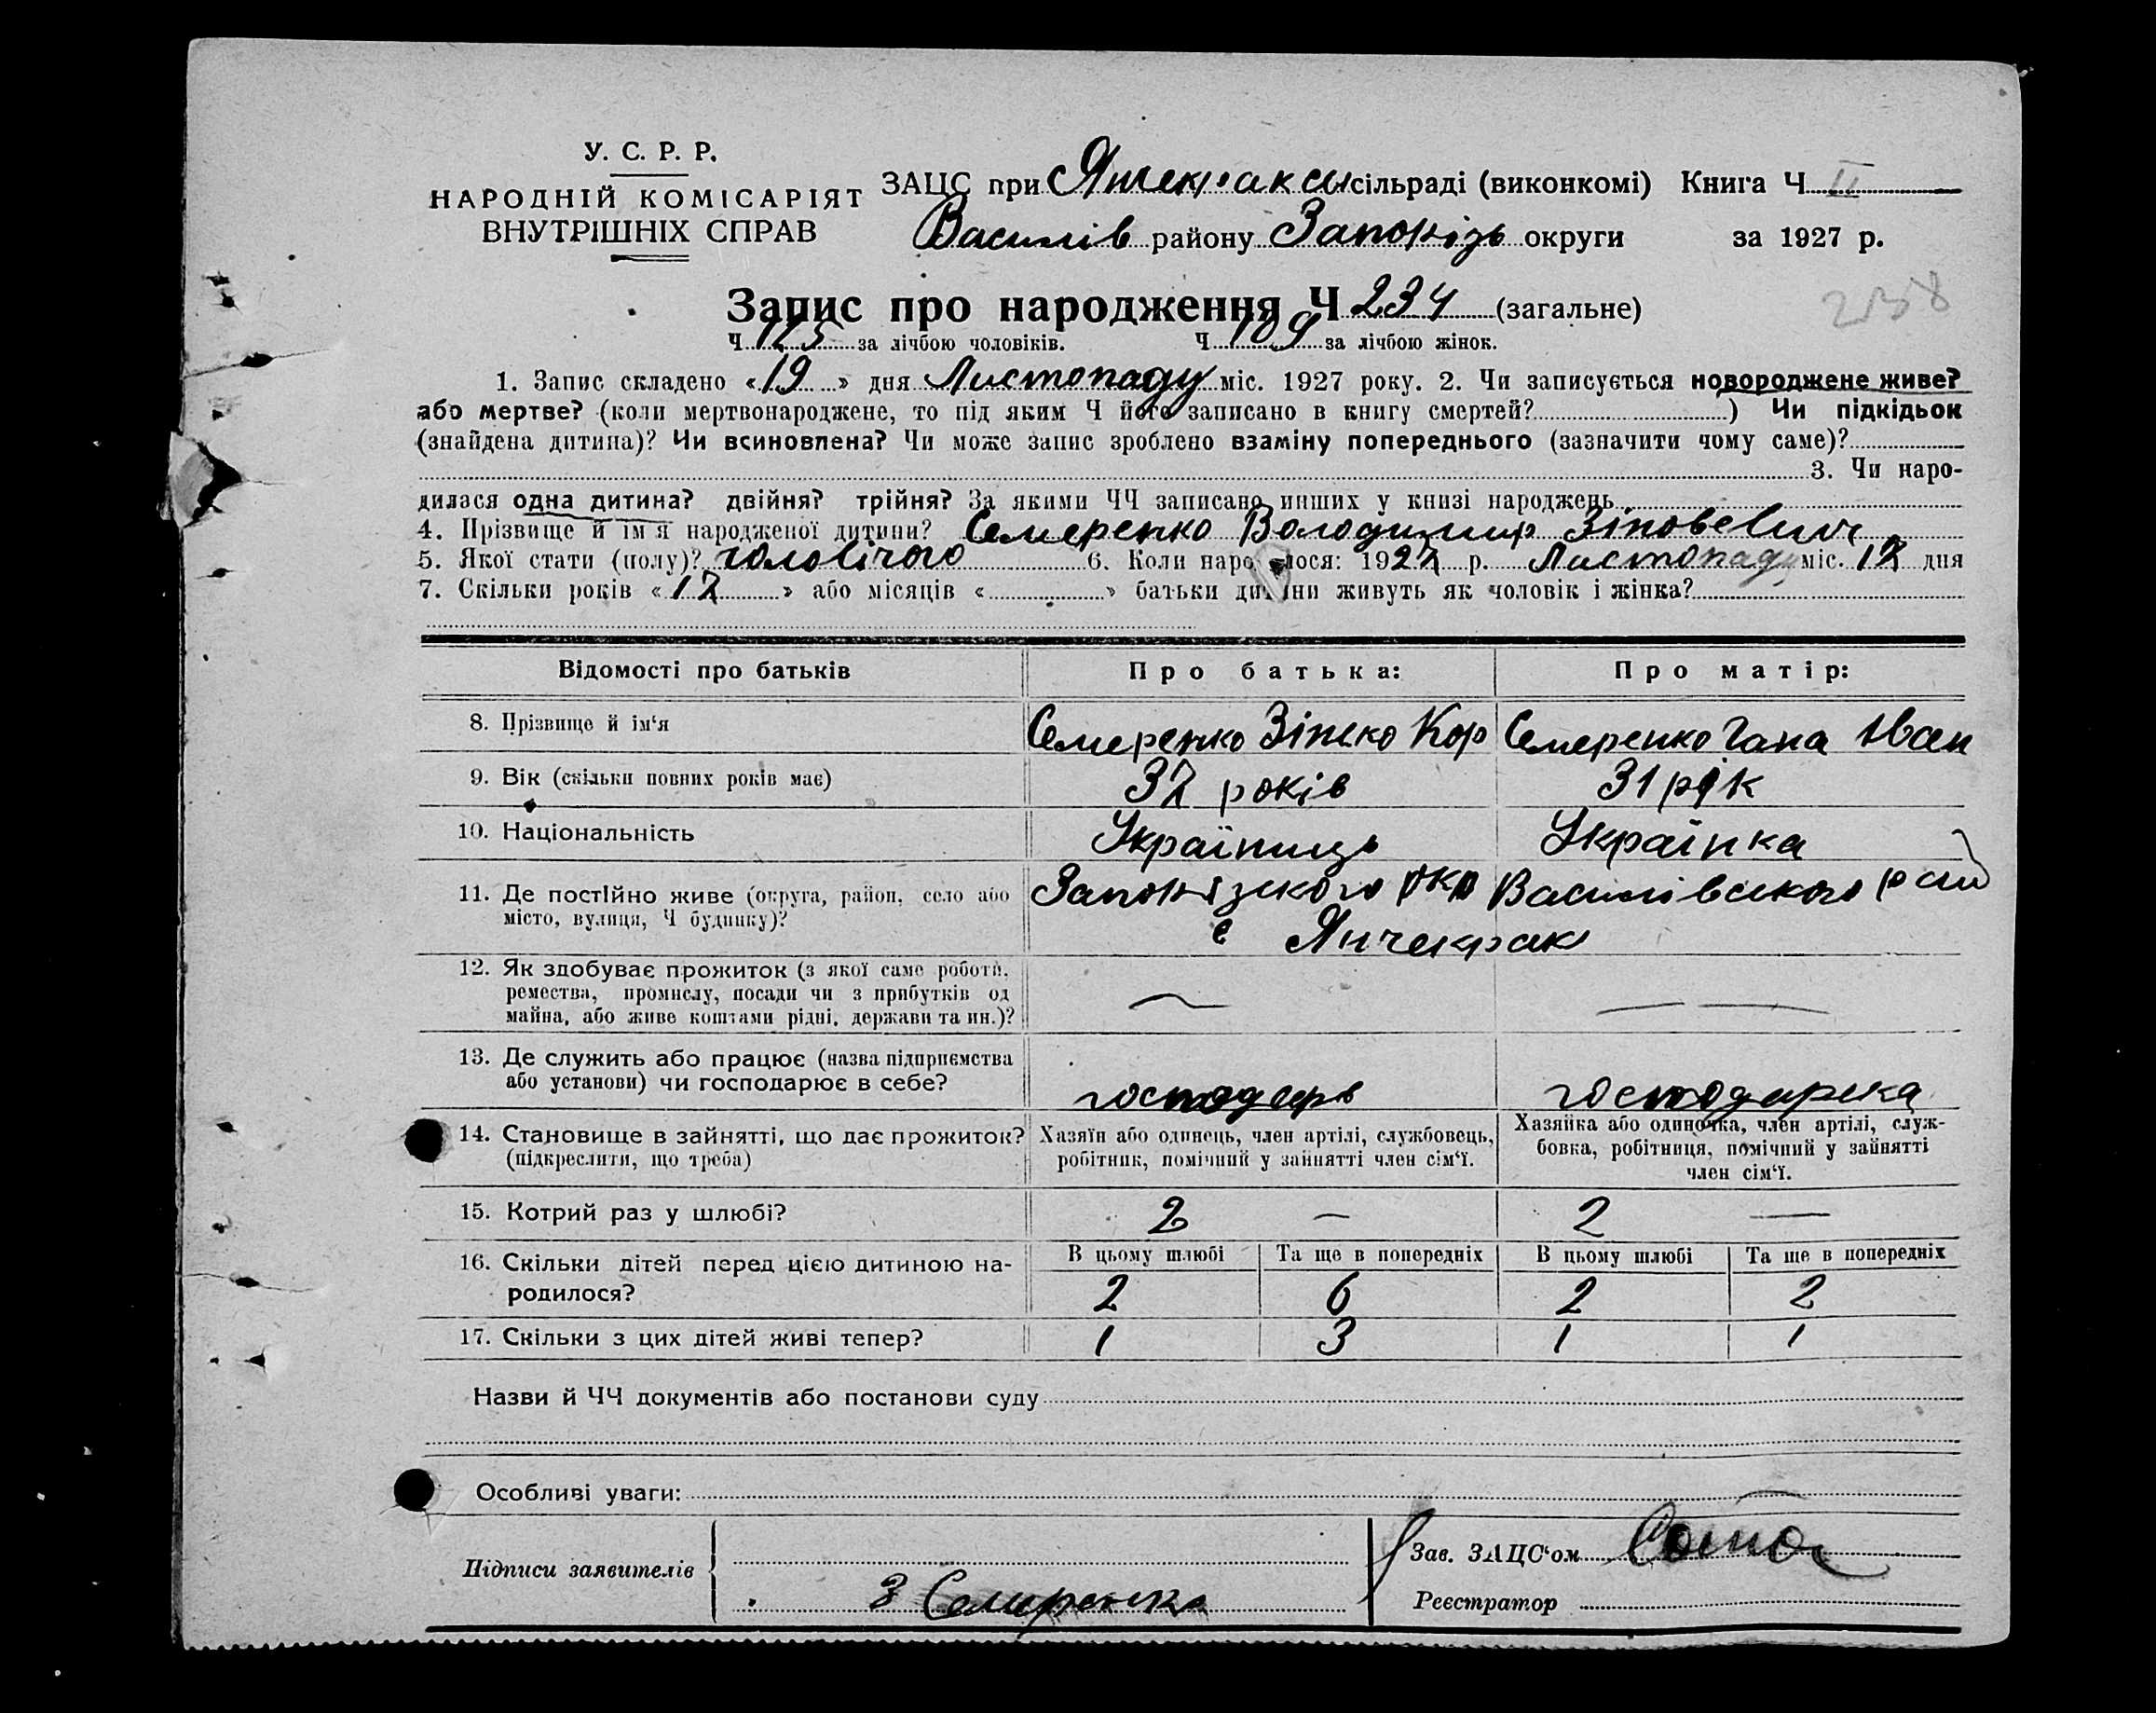 У. С. Р. Р.
НАРОДНІЙ КОМІСАРІЯТ
ВНУТРІШНІХ СПРАВ
ЗАЦС при сільраді (виконкомі) Книга Ч II
Василів району Запоріз округи за 1927 р.
Запис про народження Ч 234 (загальне)
238
Ч 125 за лічбою чоловіків. Ч 109 за лічбою жінок.
1. Запис складено «19» дня Листопаду міс. 1927 року. 2. Чи записується новороджене живе?
або мертве? (коли мертвонароджене, то під яким Ч його записано в книгу смертей? ) Чи підкідьок
(знайдена дитина)? Чи всиновлена? Чи може запис зроблено взаміну попереднього (зазначити чому саме)?
3. Чи наро-
дилася одна дитина? двійня? трійня? За якими ЧЧ записано инших у книзі народжень
4. Прізвище й ім'я народженої дитини? Семеренко Володимир Зіновевич
5. Якої стати (полу)? чоловічого 6. Коли народилося: 1927 р. Листопаду міс. 17 дня
7. Скільки років «17» або місяців « » батьки дитини живуть як чоловік і жінка?
Відомості про батьків Про батька: Про матір:
8. Прізвище й ім'я Семеренко Зінько Кор Семеренко Гана Іван
9. Вік (скільки повних років має) 37 років 31 рік
10. Національність Українець Українка
11. Де постійно живе (округа, район, село або Запорізского окр Василівского рай
місто, вулиця, Ч будинку)? с Янчекрак
12. Як здобуває прожиток (з якої саме роботи,
ремества, промислу, посади чи з прибутків од
майна, або живе коштами рідні, держави та ин.)?
13. Де служить або працює (назва підприємства
або установи) чи господарює в себе? господарь господарка
14. Становище в зайнятті, що дає прожиток? Хазяїн або одинець, член артілі, службовець, Хазяйка або одиночка, член артілі, служ-
(підкреслити, що треба) робітник, помічний у зайнятті член сім'ї. бовка, робітниця, помічний у зайнятті
член сім'ї.
15. Котрий раз у шлюбі? 2 — 2 —
16. Скільки дітей перед цією дитиною на- В цьому шлюбі Та ще в попередніх В цьому шлюбі Та ще в попередніх
родилося? 2 6 2 2
17. Скільки з цих дітей живі тепер? 1 3 1 1
Назви й ЧЧ документів або постанови суду
Особливі уваги:
Підписи заявителів
З Семеренко
Зав. ЗАЦС'ом
Реєстратор